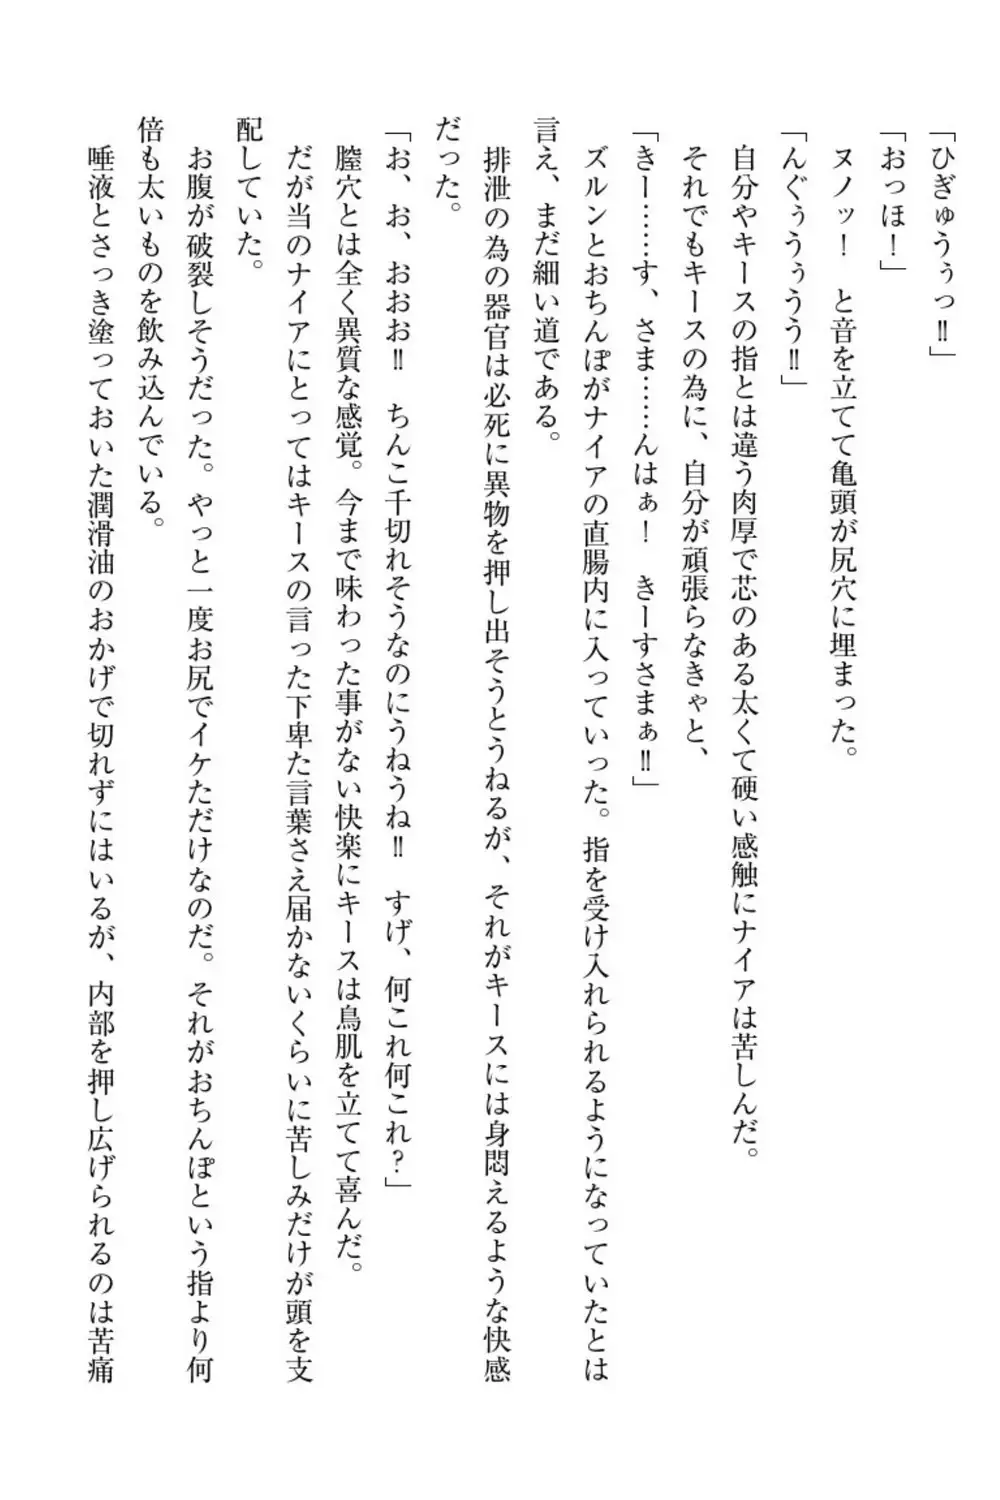 「ひぎゅうぅっ‼」
「おっほ！」
　ヌノッ！　と音を立てて亀頭が尻穴に埋まった。
「んぐぅうぅうう‼」
　自分やキースの指とは違う肉厚で芯のある太くて硬い感触にナイアは苦しんだ。
　それでもキースの為に、自分が頑張らなきゃと、
「きー………す、さま……んはぁ！　きーすさまぁ‼」
　ズルンとおちんぽがナイアの直腸内に入っていった。指を受け入れられるようになっていたとは
言え、まだ細い道である。
　排泄の為の器官は必死に異物を押し出そうとうねるが、それがキースには身悶えるような快感
だった。
「お、お、おおお‼　ちんこ千切れそうなのにうねうね‼　すげ、何これ何これ？」
　膣穴とは全く異質な感覚。今まで味わった事がない快楽にキースは鳥肌を立てて喜んだ。
　だが当のナイアにとってはキースの言った下卑た言葉さえ届かないくらいに苦しみだけが頭を支
配していた。
　お腹が破裂しそうだった。やっと一度お尻でイケただけなのだ。それがおちんぽという指より何
倍も太いものを飲み込んでいる。
　唾液とさっき塗っておいた潤滑油のおかげで切れずにはいるが、内部を押し広げられるのは苦痛